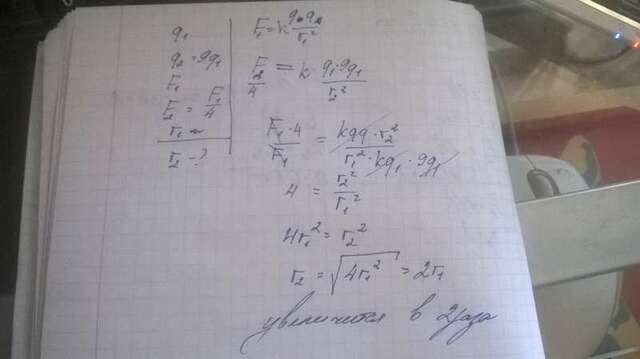 q₁
q₂ = 9q₁
F₁
F₂ = F₁/4
r₁
r₂ - ?
F₁ = k q₁q₂/r₁²
F₂/4 = k · q₁·9q₁/r₂²
F₁·4/F₁ = kqq·r₂²/r₁²·kq₁·9q₁
4 = r₂²/r₁²
4r₁² = r₂²
r₂ = √4r₁² = 2r₁
увеличится в 2 раза